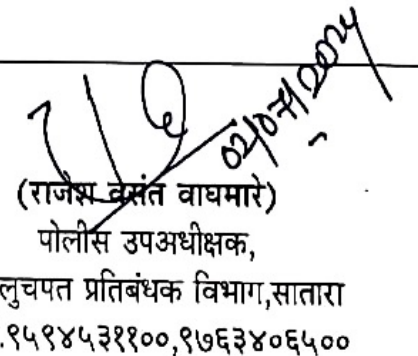 02/07/2024
(राजेश वसंत वाघमारे)
पोलीस उपअधीक्षक,
लुचपत प्रतिबंधक विभाग,सातारा
.९५९४५३११००,९७६३४०६५००